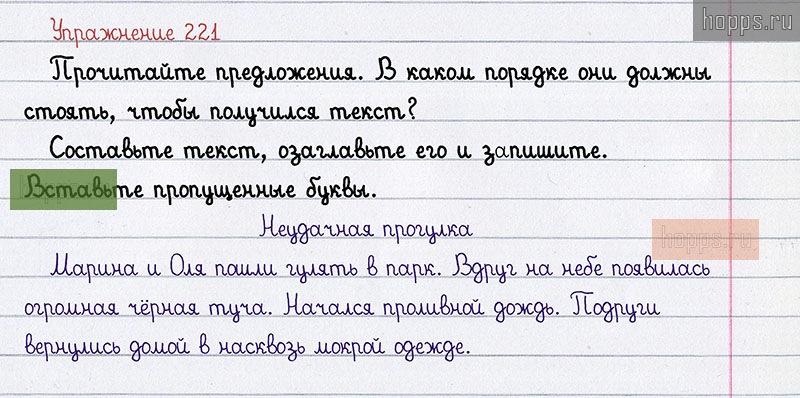 hopps.ru
Упражнение 221
Прочитайте предложения. В каком порядке они должны
стоять, чтобы получился текст?
Составьте текст, озаглавьте его и запишите.
Вставьте пропущенные буквы.
Неудачная прогулка
hopps.ru
Марина и Оля пошли гулять в парк. Вдруг на небе появилась
огромная чёрная туча. Начался проливной дождь. Подруги
вернулись домой в насквозь мокрой одежде.